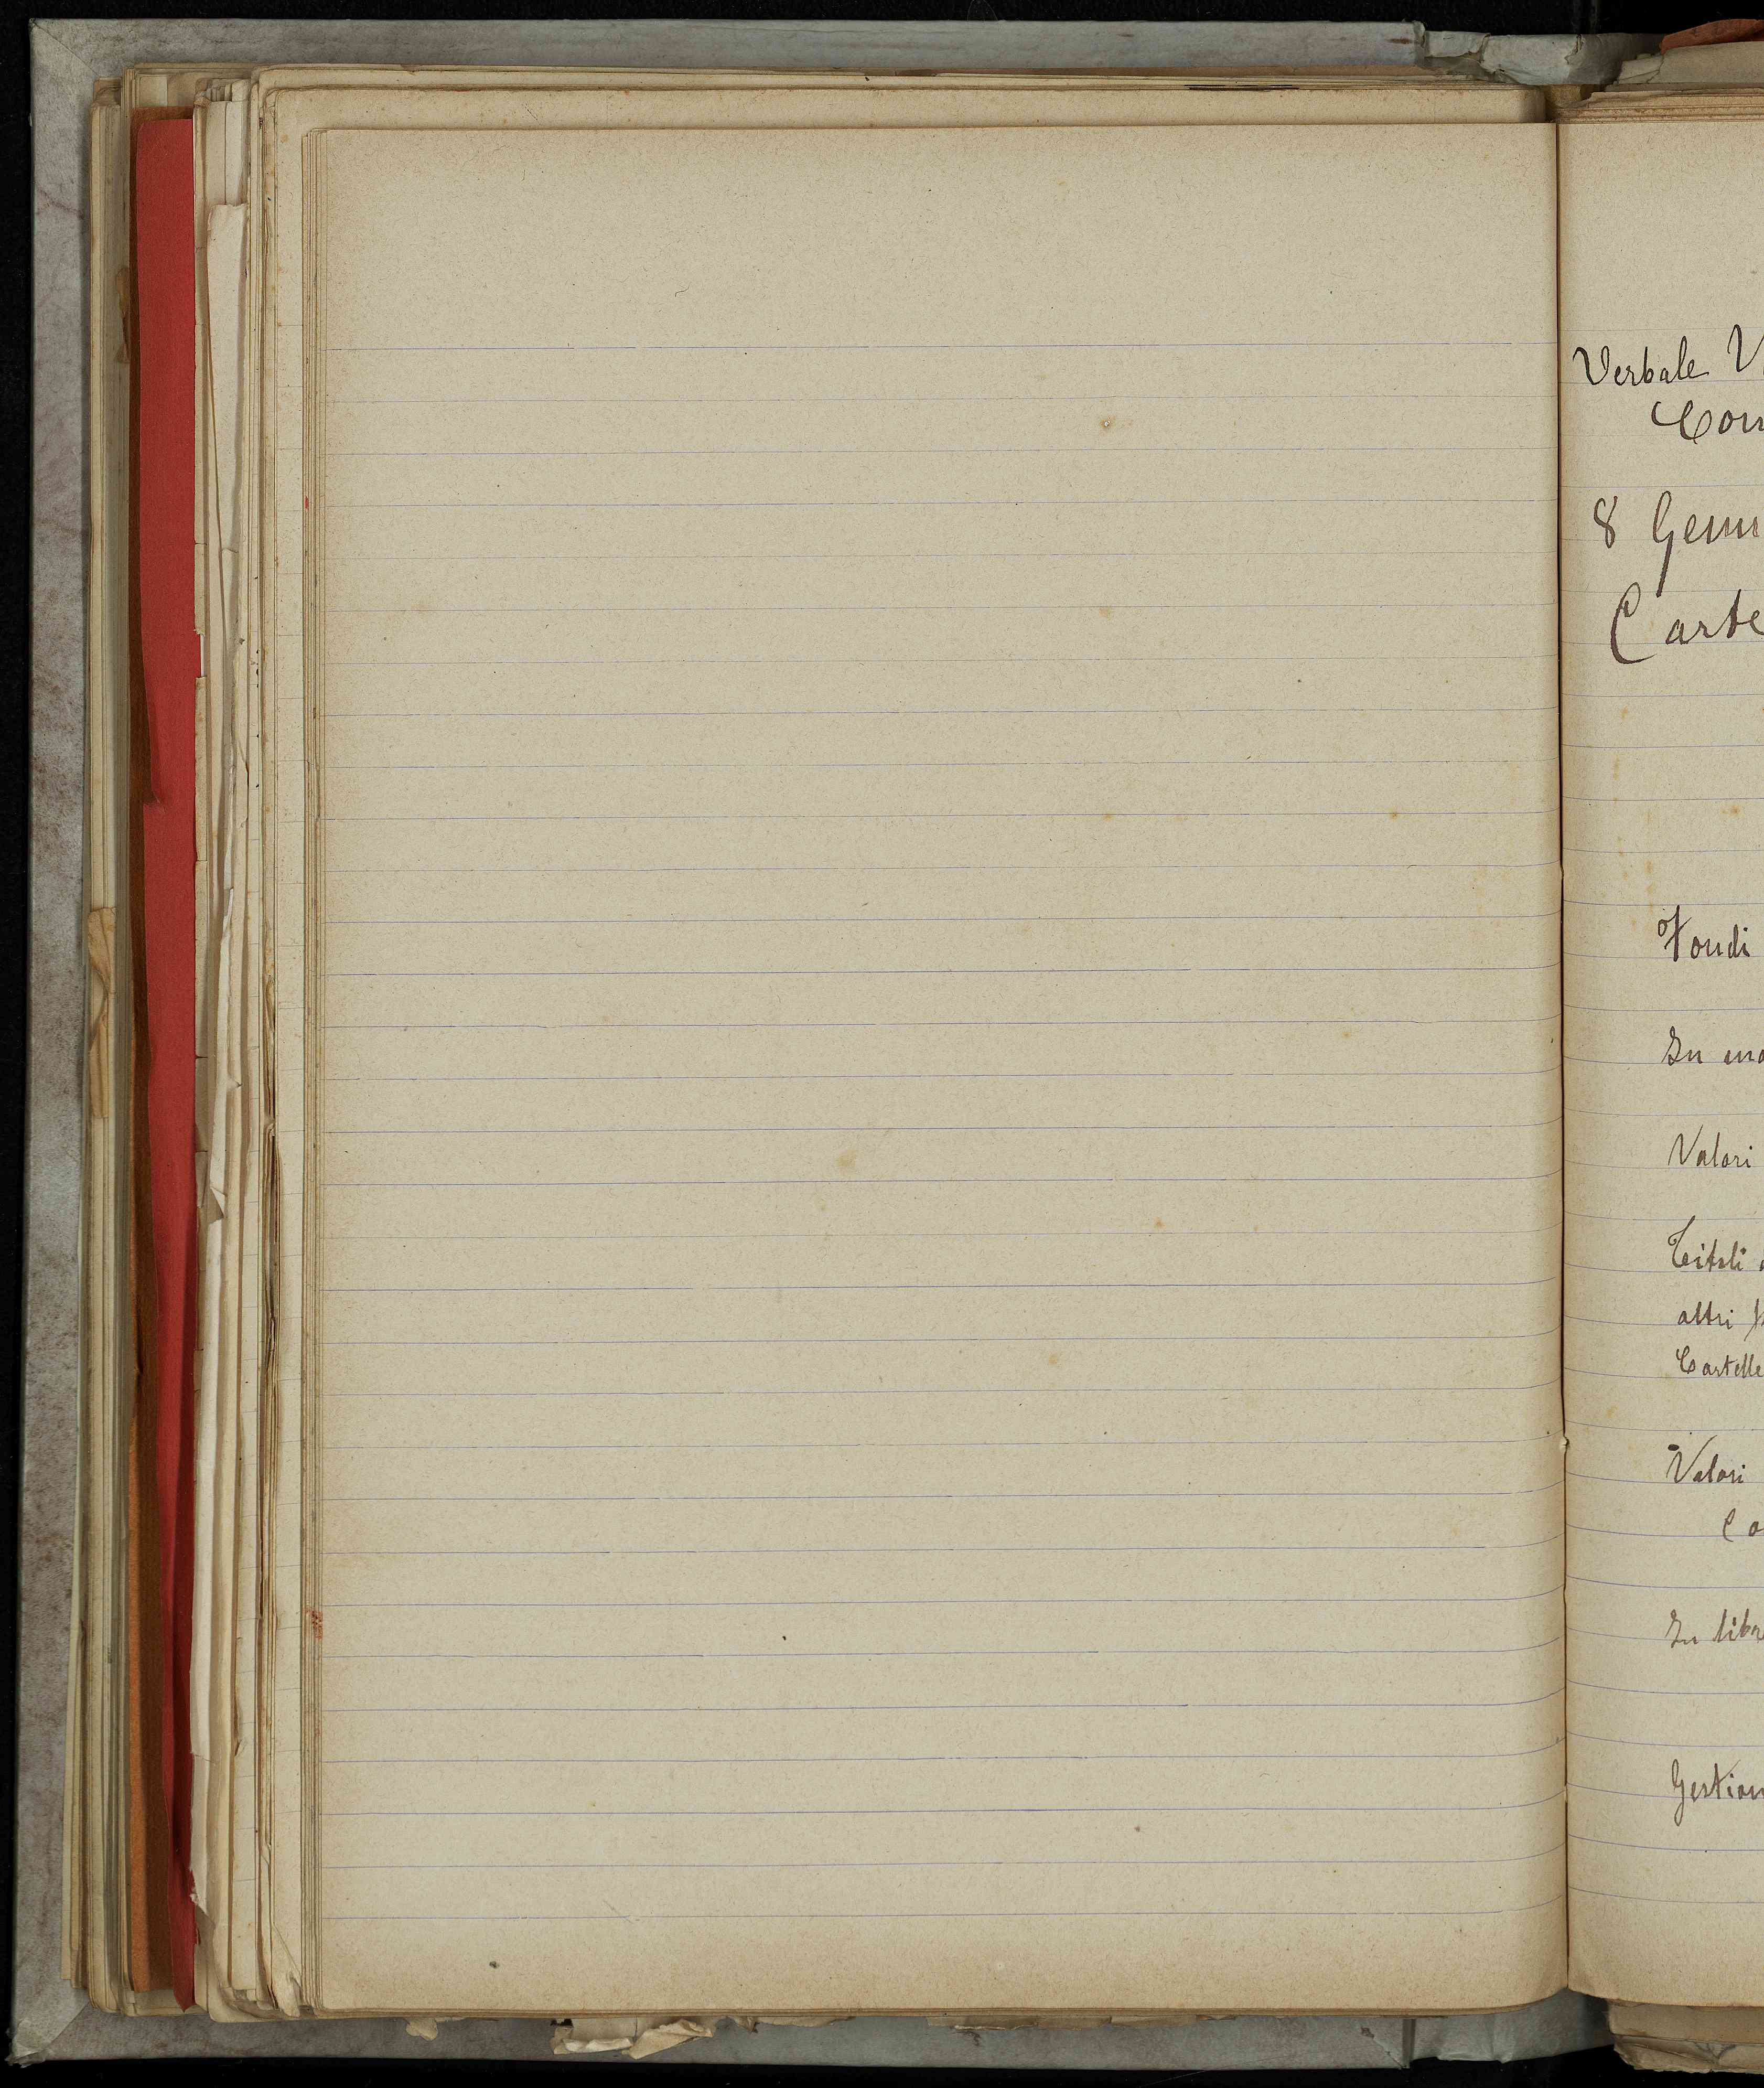 Verbale V
Con
8 Genn
Carte
Fondi
In ma
Valori
Titoli
altri
Cartelle
Valori
Ca
In libr
Gestion